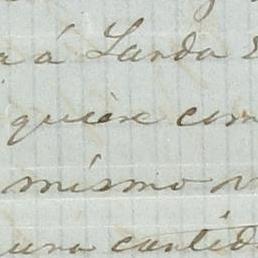 á Landa
quiere com
mismo
una cantid